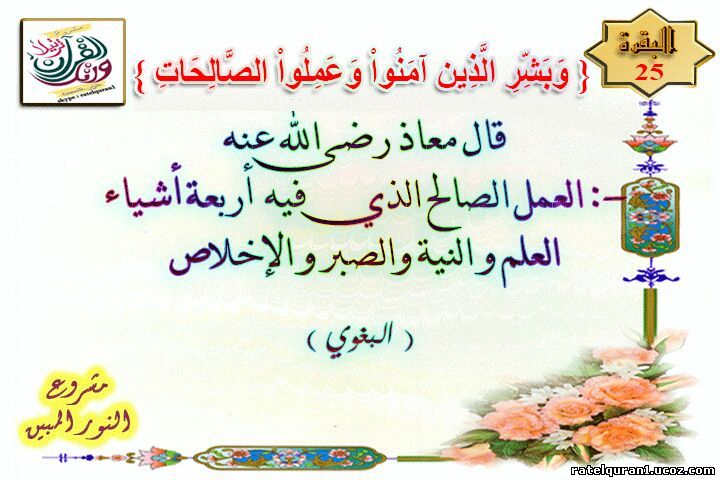 البقرة
25
{ وَبَشِّرِ الَّذِين آمَنُواْ وَعَمِلُواْ الصَّالِحَاتِ }
قال معاذ رضى الله عنه
-: العمل الصالح الذي فيه أربعة أشياء
العلم و النية والصبر و الإخلاص
( البغوي )
مشروع
النور المبين
skype : ratelquran1
ratelquran1.ucoz.com